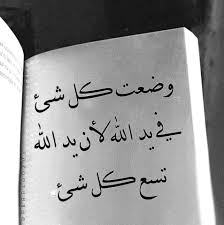 وضعت كل شئ
في يد الله لأن يد الله
تسع كل شئ